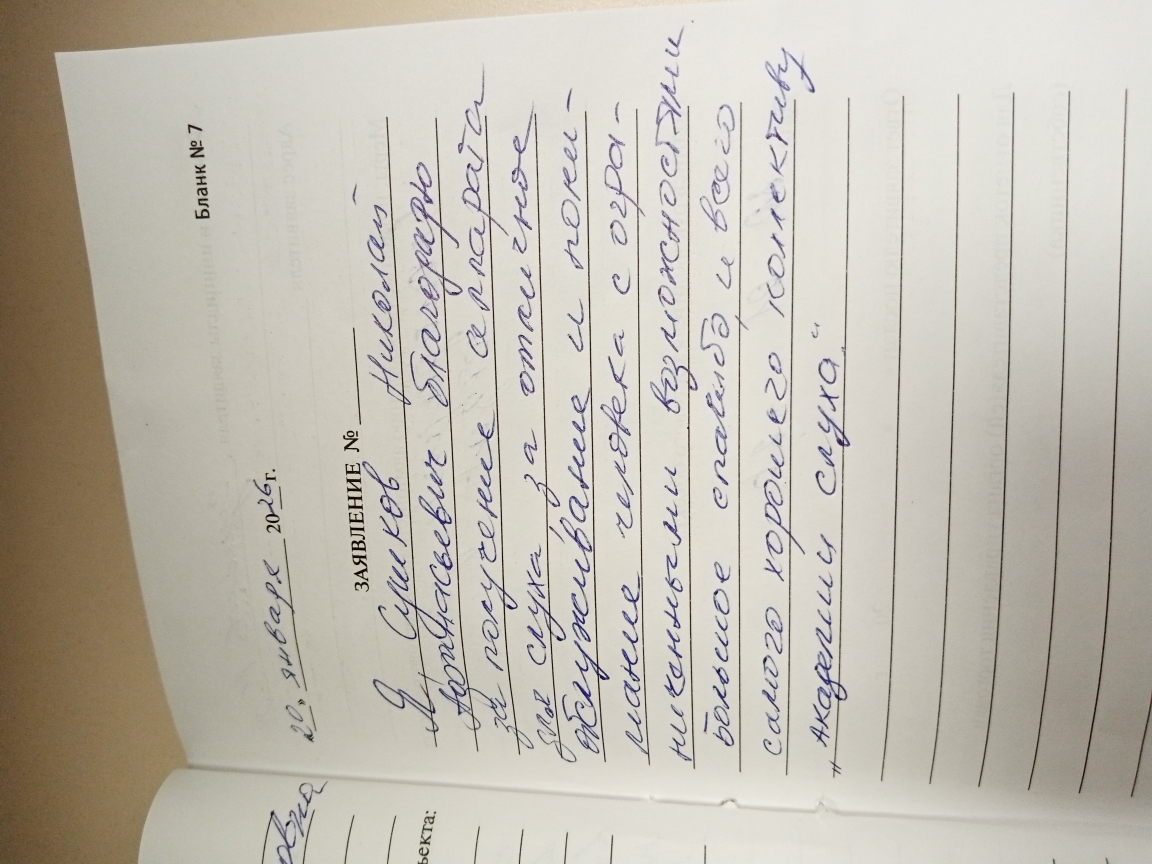 Бланк № 7
20 „ января 2026 г.
ЗАЯВЛЕНИЕ № 
Я Сушков Николай
благодарю
за получение аппарата
для слуха, за отличное
обслуживание и пони-
мание человека с огра-
ниченными возможностями.
Большое спасибо, и всего
самого хорошего коллективу
„Академии слуха“
ъекта:
овна